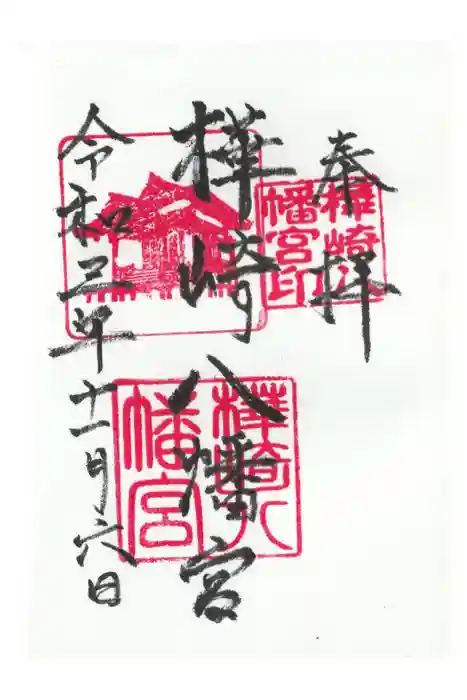 奉拝
樺崎八幡宮
令和三年十一月六日
樺崎八
幡宮印
樺崎八
幡宮